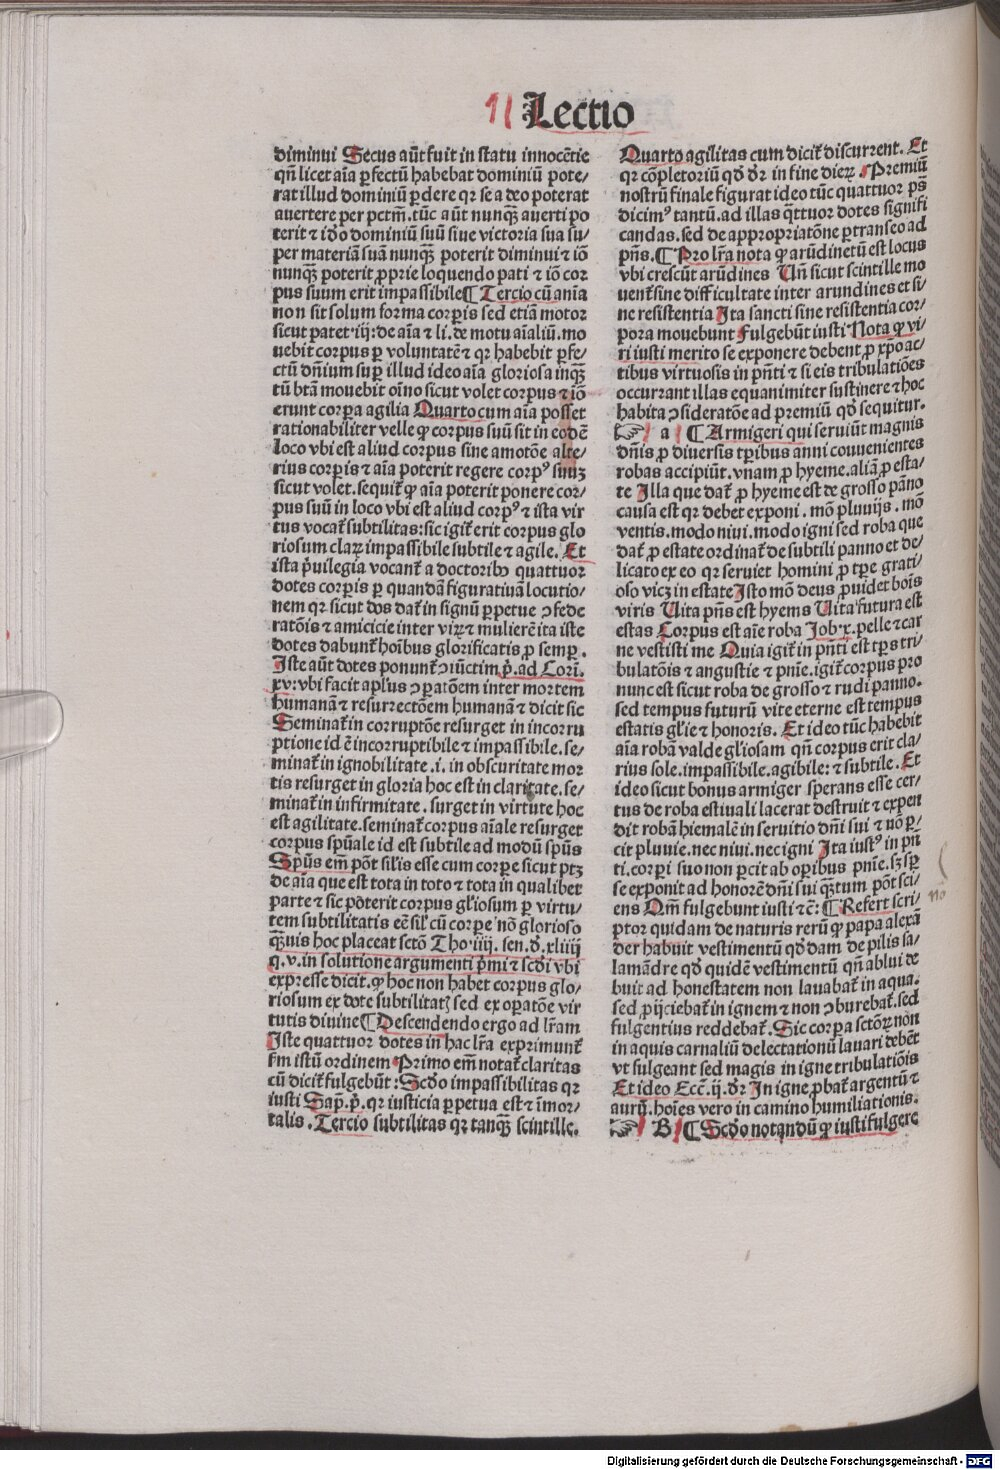 Lectio
diminui Secus aūt fuit in statu innocētie
qñ licet aīa ꝑfectū habebat dominiū pote/
rat illud dominiū ꝑdere qꝛ se a deo poterat
auertere per petm̄. tūc aūt nunqꝫ auerti po
terit ⁊ iđo dominiū suū siue victoria sua su/
per materiā suā nunqꝫ poterit diminui ⁊ iō
nunqꝫ poterit ꝓprie loquendo pati ⁊ iō cor
pus suum erit impassibile ¶ Tercio cū anīa
non sit solum forma corꝑis sed etiā motor
sicut patet .iij: de aīa ⁊ li. de motu aīaliū. mo
uebit corpus ꝑ voluntatē ⁊ qꝛ habebit ꝑfe/
ctū dn̄ium suꝑ illud ideo aīa gloriosa inqꝫ
tū btā mouebit oīno sicut volet corpus ⁊ iō
erunt corꝑa agilia Quarto cum aīa posset
rationabiliter velle ꝙ corpus suū sit in eodē
loco vbi est aliud corpus sine amotōe alte/
rius corꝑis ⁊ aīa poterit regere corpꝰ suuꝫ
sicut volet. sequit̄ ꝙ aīa poterit ponere cor/
pus suū in loco vbi est aliud corpꝰ ⁊ ista vir
tus vocat̄ subtilitas: sic igit̄ erit corpus glo
riosum claꝝ impassibile subtile ⁊ agile. Et
ista p̄uilegia vocant̄ a doctoribꝰ quattuor
dotes corꝑis ꝑ quandā figuratiuā locutio/
nem qꝛ sicut dos dat̄ in signū ꝑpetue ↄfede
ratōis ⁊ amicicie inter viꝝ ⁊ mulierē ita iste
dotes dabunt̄ hoībus glorificatis ꝓ semꝑ.
Iste aūt dotes ponunt̄ ↄiūctim p̄. ad Corī.
xv: vbi facit apl'us ↄꝑatōem inter mortem
humanā ⁊ resurrectōem humanā ⁊ dicit sic
Seminat̄ in corruptōe resurget in incorru
ptione id ē incorruptibile ⁊ impassibile. se/
minat̄ in ignobilitate .i. in obscuritate mor
tis resurget in gloria hoc est in claritate. se/
minat̄ in infirmitate. surget in virtute hoc
est agilitate. seminat̄ corpus aīale resurget
corpus spūale id est subtile ad modū spūs
Spūs em̄ pōt sil'is esse cum corꝑe sicut ptꝫ
de aīa que est tota in toto ⁊ tota in qualibet
parte ⁊ sic pōterit corpus gl'iosum ꝑ virtu/
tem subtilitatis eē sil' cū corꝑe nō glorioso
qꝫuis hoc placeat sctō Tho .iiij. sen. đ. xliiij
q. v. in solutione argumenti p̄mi ⁊ scđi vbi
expresse dicit. ꝙ hoc non habet corpus glo/
riosum ex dote subtilitatꝭ sed ex oꝑatōe vir
tutis diuine ¶ Descendendo ergo ad lr̄am
Iste quattuor dotes in hac lr̄a exprimunt̄
fm istū ordinem Primo em̄ notat̄ claritas
cū dicit̄ fulgebūt: Scđo impassibilitas qꝛ
iusti Sap̄. p̄. qꝛ iusticia ꝑpetua est ⁊ īmor/
talis. Tercio subtilitas qꝛ tanqꝫ scintille.
Quarto agilitas cum dicit̄ discurrent. Et
qꝛ cōpletoriū qđ dr̄ in fine dieꝝ. Premiū
nostrū finale figurat ideo tūc quattuor ps̄
dicimꝰ tantū. ad illas qttuor dotes signifi
candas. sed de appropriatōne ꝑtranseo ad
pn̄s. ¶ Pro lr̄a nota ꝙ arūdinetū est locus
vbi crescūt arūdines Un̄ sicut scintille mo
uent̄ sine difficultate inter arundines et si/
ne resistentia Ita sancti sine resistentia cor/
pora mouebunt Fulgebūt iusti Nota ꝙ vi/
ri iusti merito se exponere debent ꝓ xp̄o ac/
tibus virtuosis in pn̄ti ⁊ si eis tribulatiōes
occurrant illas equanimiter sustinere ⁊ hoc
habita ↄsideratōe ad premiū qđ sequitur.
☞ a ¶ Armigeri qui seruiūt magnis
dn̄is ꝓ diuersis tꝑibus anni conuenientes
robas accipiūt. vnam ꝓ hyeme. aliā ꝓ esta/
te Illa que dat̄ ꝓ hyeme est de grosso pāno
causa est qꝛ debet exponi. mō pluuijs. mō
ventis. modo niui. modo igni sed roba que
dat̄ ꝓ estate ordinat̄ de subtili panno et de/
licato ex eo qꝛ seruiet homini ꝓ tꝑe grati/
oso vicꝫ in estate Isto mō deus ꝓuidet boīs
viris Uita pn̄s est hyems Uita futura est
estas Corpus est aīe roba Job. x. pelle ⁊ car
ne vestisti me Quia igit̄ in pn̄ti est tꝑs tri/
bulatōis ⁊ angustie ⁊ pn̄ie. igit̄ corpus pro
nunc est sicut roba de grosso ⁊ rudi panno.
sed tempus futurū vite eterne est tempus
estatis gl'ie ⁊ honoris. Et ideo tūc habebit
aīa robā valde gl'iosam qñ corpus erit cla/
rius sole. impassibile. agibile: ⁊ subtile. Et
ideo sicut bonus armiger sperans esse cer/
tus de roba estiuali lacerat destruit ⁊ expen
dit robā hiemalē in seruitio dn̄i sui ⁊ nō ꝑ/
cit pluuie. nec niui. nec igni Ita iustꝰ in pn̄
ti. corꝑi suo non ꝑcit ab oꝑibus pn̄ie. sꝫ sꝑ
se exponit ad honorē dn̄i sui qꝫtum pōt sci/
ens Qm̄ fulgebunt iusti ⁊ c̄: ¶ Refert scri/
ptor quidam de naturis rerū ꝙ papa alexā
der habuit vestimentū qđdam de pilis sa/
lamādre qđ quidē vestimentū qñ ablui de
buit ad honestatem non lauabat̄ in aqua.
sed ꝓijciebat̄ in ignem ⁊ non ↄburebat̄. sed
fulgentius reddebat̄. Sic corꝑa sctōꝝ non
in aquis carnaliū delectationū lauari debēt
vt fulgeant sed magis in igne tribulatiōis
Et ideo Ecc̄. ij. dr̄: In igne ꝓbat̄ argentū ⁊
aurū. hoīes vero in camino humiliationis.
☞ B ¶ Scđo notandū ꝙ iusti fulgere